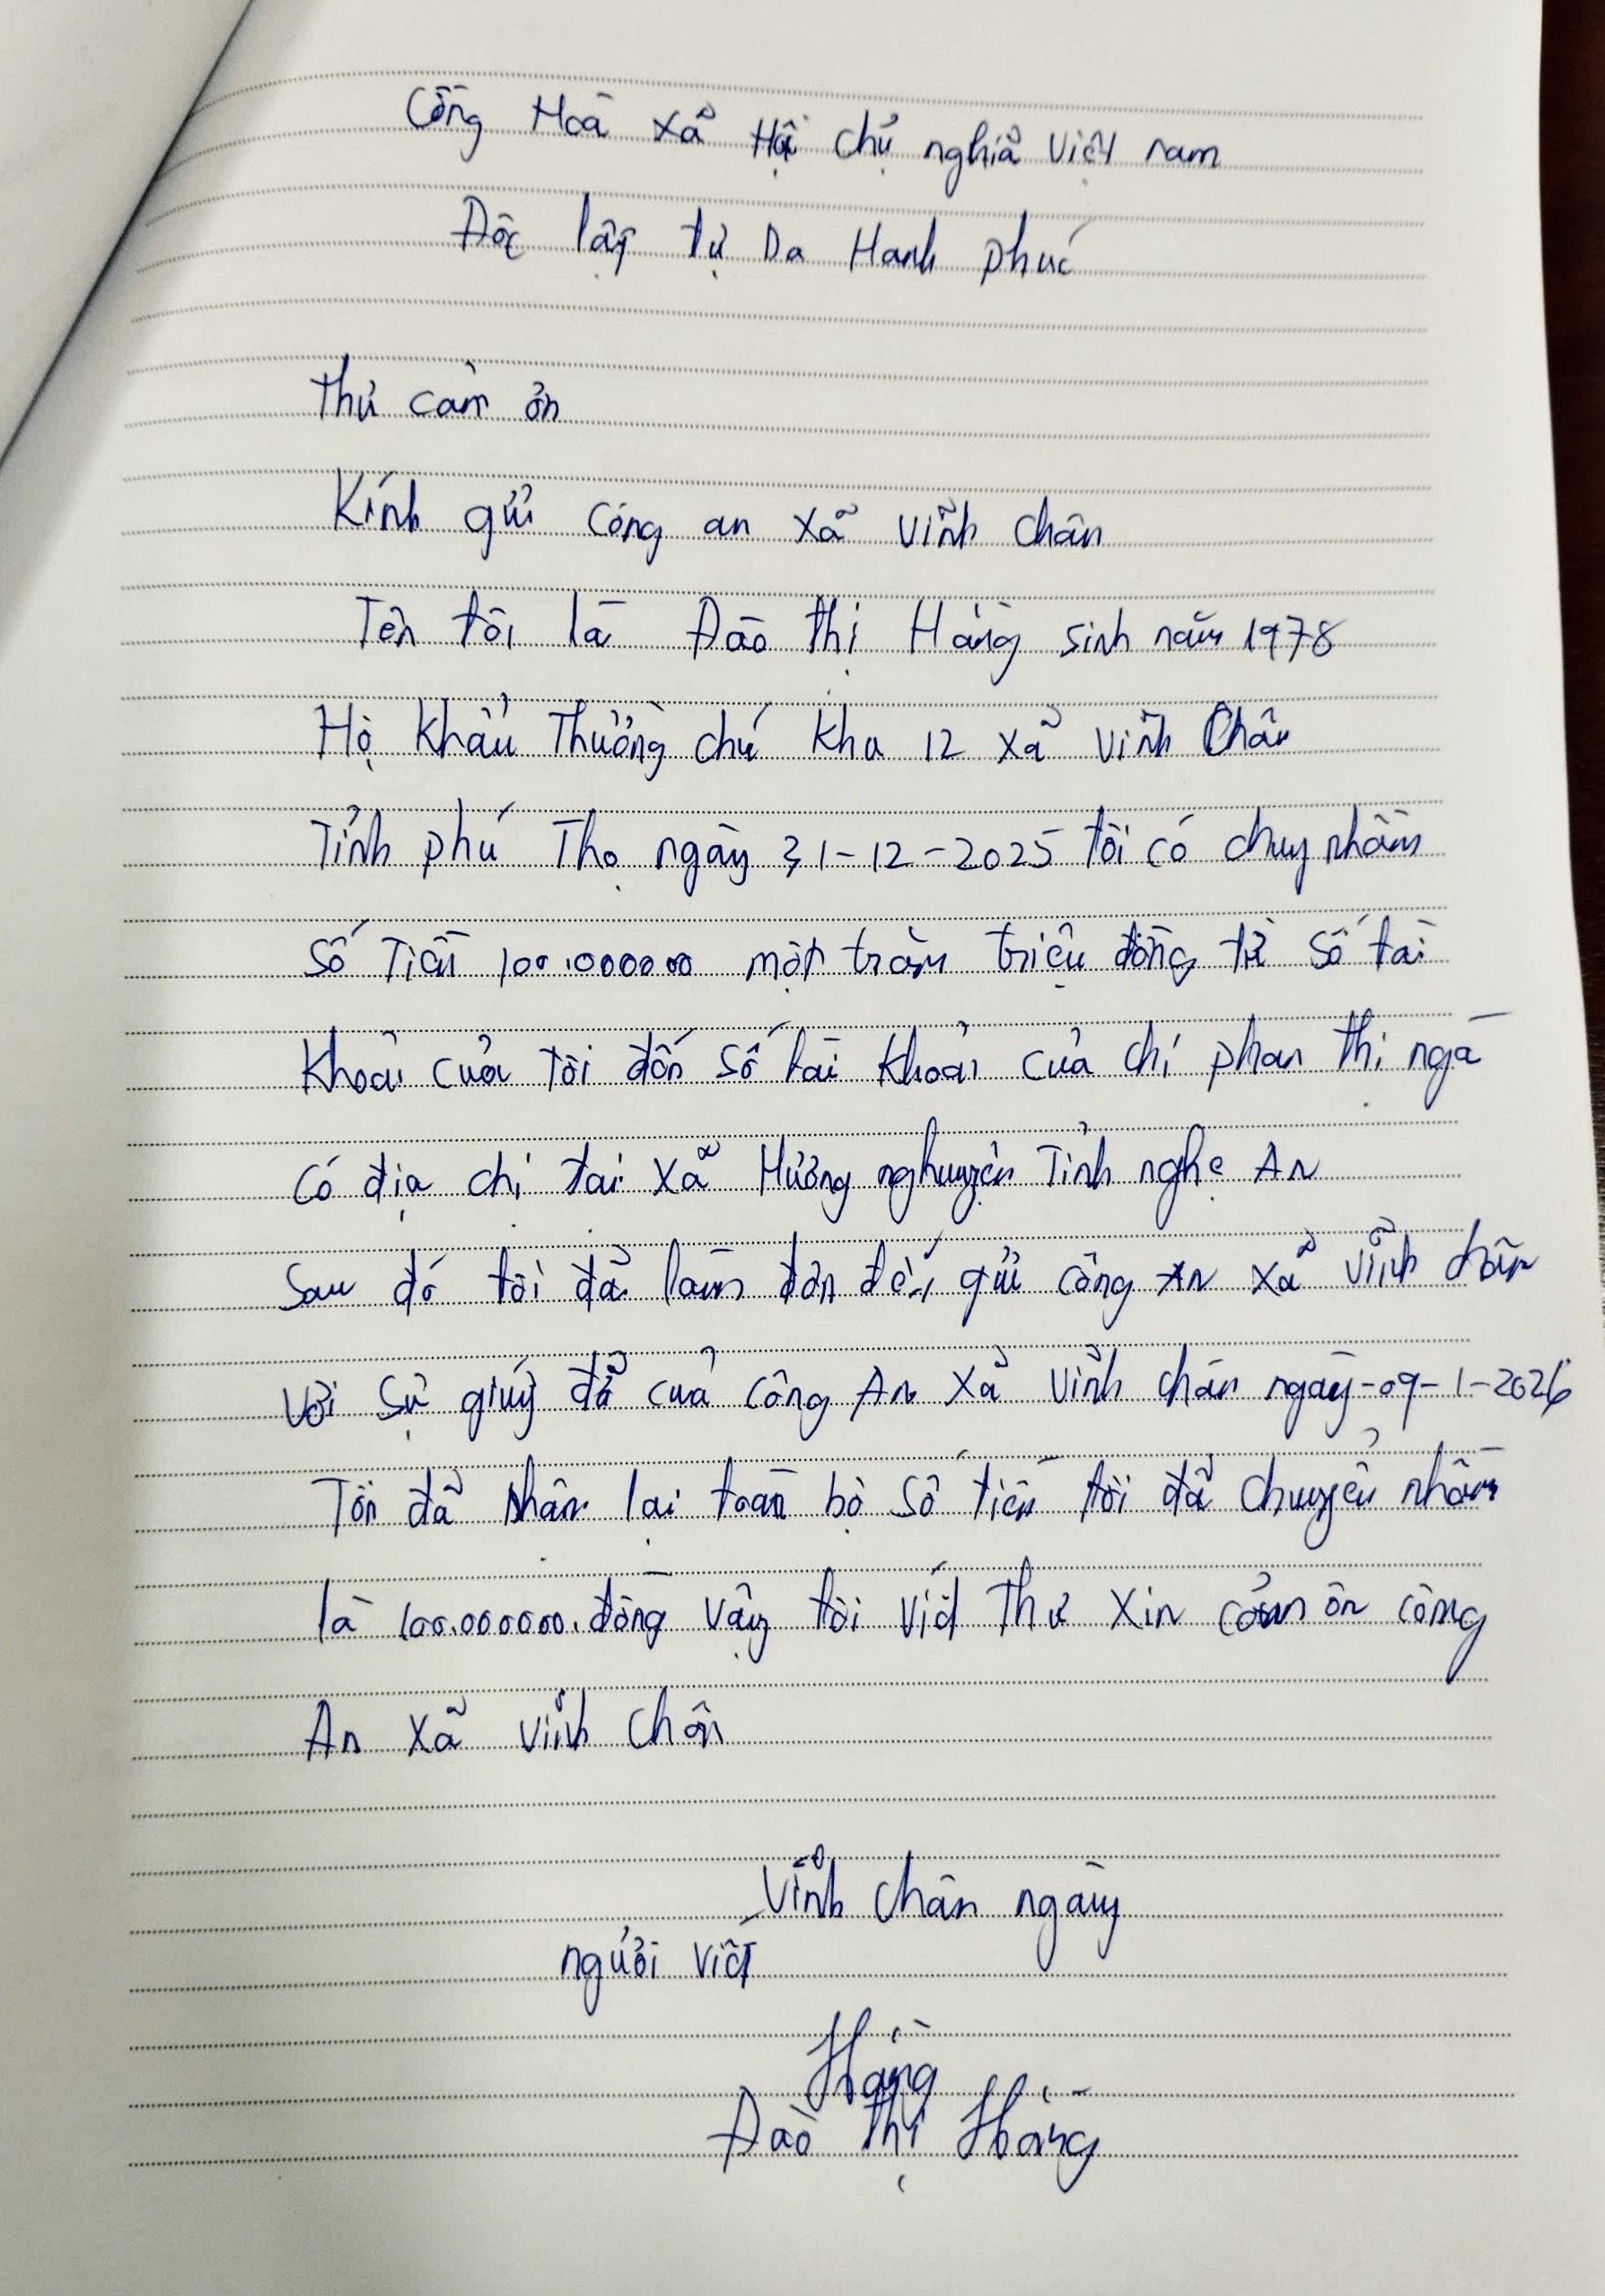 Công Hoà xã Hội chủ nghiã việt nam
Độc lập tự Do Hanh phúc
thư cảm ơn
Kính gửi công an xã vĩnh chân
Tên tôi là Đào thị Hằng sinh năm 1978
Hộ khẩu Thường chú khu 12 xã vĩnh Chân
Tỉnh phú Thọ ngày 31-12-2025 tôi có chuy nhầm
số Tiền 100.000000 một trăm triệu đồng từ số tài
khoải của Tôi đến số tài khoải của chị phan thị nga
có địa chỉ tại xã Hương nghuyên Tỉnh nghẹ An
sau đó tôi đã làm đơn đến gửi công An xã vĩnh chân
với sự giúp đỡ của công An xã vĩnh chân ngày-09-1-2026
Tôi đã nhận lại toàn bộ số tiền tôi đã chuyển nhầm
là 100.000000.đồng vậy tôi viết Thư xin cảm ơn công
An xã vĩnh chân
Vĩnh chân ngày
người viết
Hằng
Đào thị Hằng